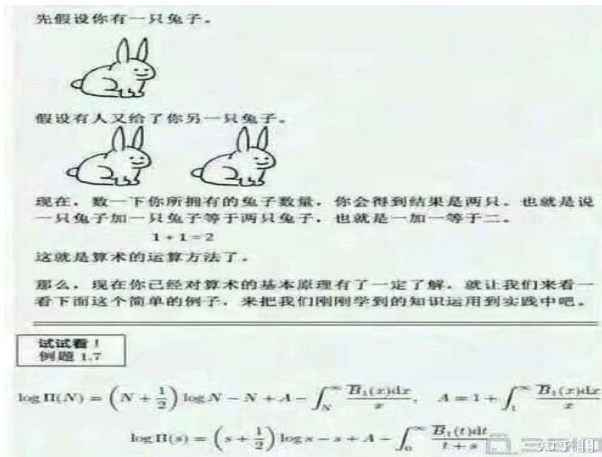 先假设你有一只兔子。
假设有人又给了你另一只兔子。
现在，数一下你所拥有的兔子数量，你会得到结果是两只。也就是说
一只兔子加一只兔子等于两只兔子，也就是一加一等于二。
1 + 1 = 2
这就是算术的运算方法了。
那么，现在你已经对算术的基本原理有了一定了解，就让我们来看一
看下面这个简单的例子，来把我们刚刚学到的知识运用到实践中吧。
试试看！
例题 1.7
log Π(N) = (N + 1/2) log N − N + A − ∫_N^∞ B̅₁(x)dx/x, A = 1 + ∫_1^∞ B̅₁(x)dx/x
log Π(s) = (s + 1/2) log s − s + A − ∫_0^∞ B̅₁(t)dt/t + s